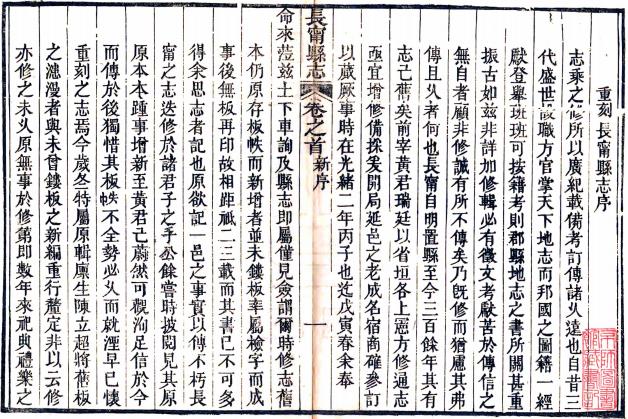 重刻長甯縣志序
志乘之修所以廣紀載備考訂傳諸久遠也自昔三
代盛世設職方官掌天下地志而邦國之圖籍一經
獻登舉班班可按籍考則郡縣地志之書所關甚重
振古如茲非詳加修輯必有徵文考獻苦於傳信之
無自者顧非修誠有所不傳矣乃旣修而猶慮其弗
傳且久者何也長甯自明置縣至今三百餘年其有
志已舊矣前宰黃君瑞廷以省垣各上憲方修通志
亟宜增修備採爰開局延邑之老成名宿商確參訂
以蕆厥事時在光緒二年丙子也迄戊寅春余奉
長甯縣志 卷之首 新序 一
命來蒞茲土下車詢及縣志即屬僅見僉謂爾時修志舊
本仍原存板帙而新增者並未鏤板率屬檢字而成
事後無板再印故相距祗二三載而其書已不可多
得余思志者記也原欲記一邑之事實以傳不朽長
甯之志迭修於諸君子之手公餘嘗時披閱見其原
原本本踵事增新至黃君已蔚然可觀洵足信於今
而傳於後獨惜其板帙不全勢必久而就湮早已懷
重刻之志焉今歲冬特屬原輯廩生陳立超將舊板
之漶漫者與未曾鏤板之新編重行釐定非以云修
亦修之未久原無事於修第即數年來祀典禮樂之